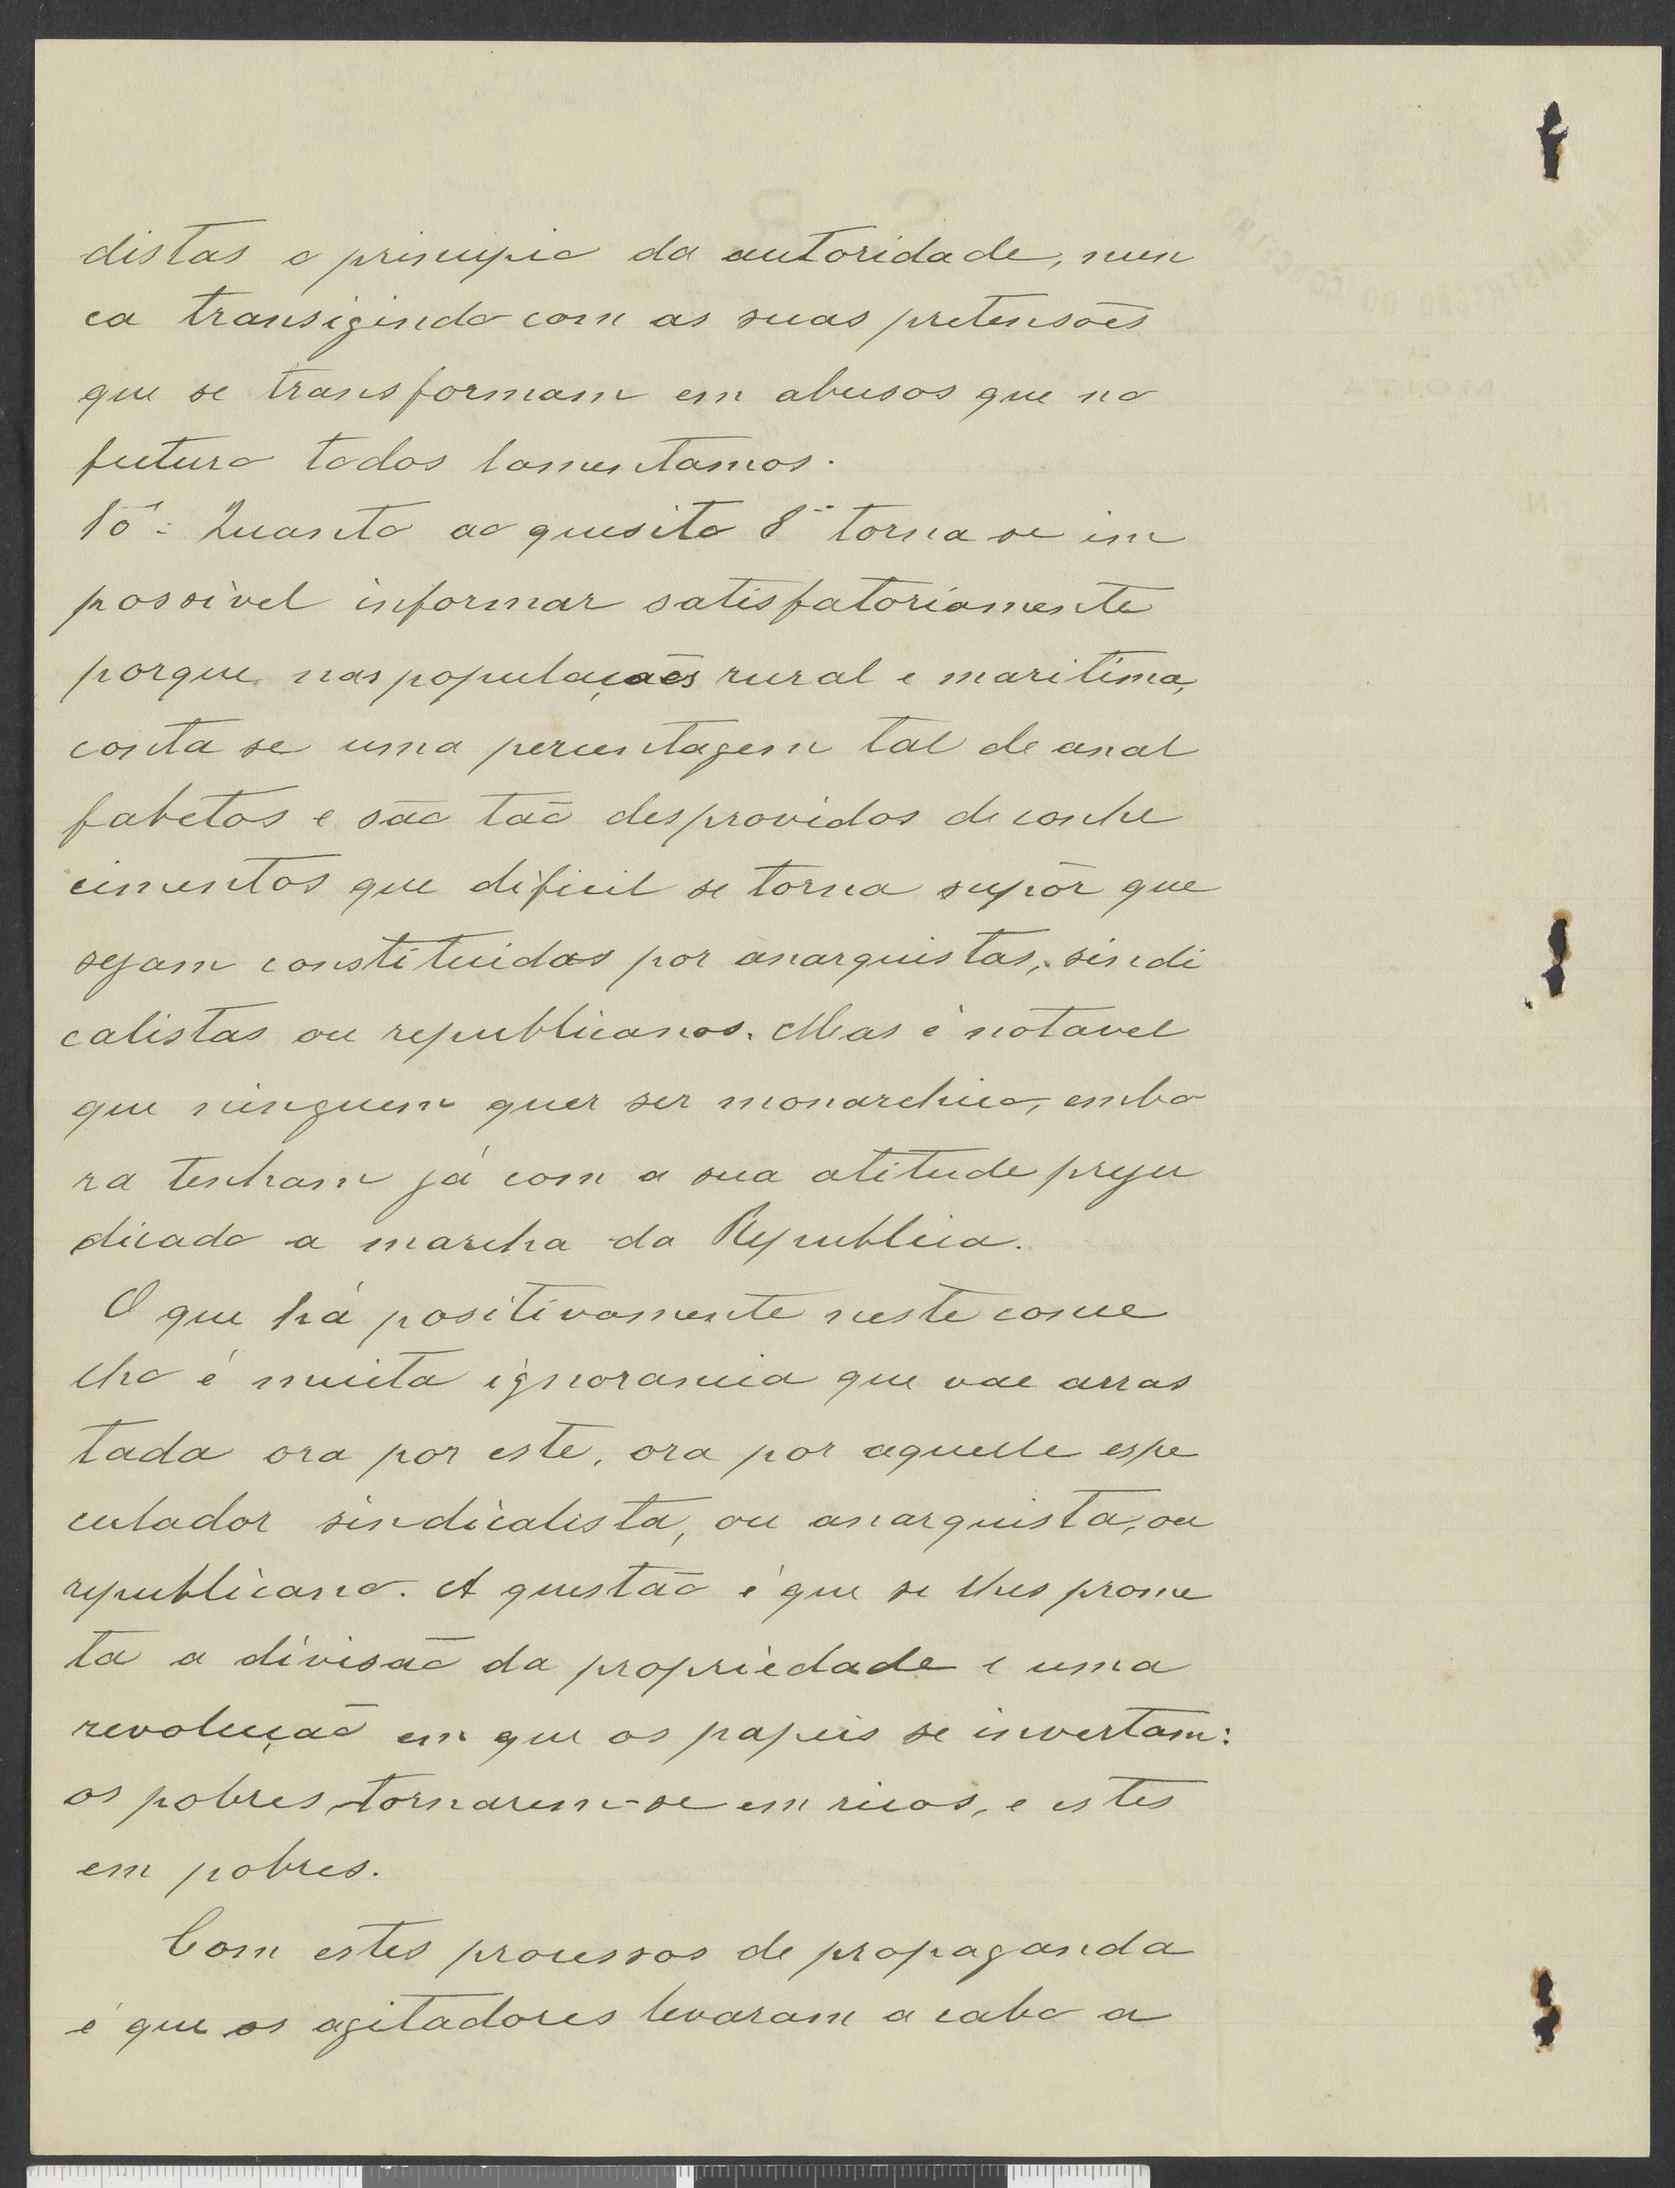 distas o principio da autoridade, nun
ca transigindo com as suas pretensões
que se transformam em abusos que no
futuro todos lamentamos.
10º: Quanto ao quesito 8º torna se im
possivel informar satisfatoriamente
porque nas populações rural e maritima,
conta se uma percentagem tal de anal
fabetos e são tão desprovidos de conhe
cimentos que dificil se torna supôr que
sejam constituidas por anarquistas, sindi
calistas ou republicanos. Mas é notavel
que ninguem quer ser monarchico, embo
ra tenham já com a sua atitude preju
dicado a marcha da Republica.
O que há positivamente neste conce
lho é muita ignorancia que vae arras
tada ora por este, ora por aquelle espe
culador sindicalista, ou anarquista, ou
republicano. A questão é que se lhes prome
ta a divisão da propriedade e uma
revolução em que os papeis se invertam:
os pobres, tornarem-se em ricos, e estes
em pobres.
Com estes processos de propaganda
é que os agitadores levaram a cabo a